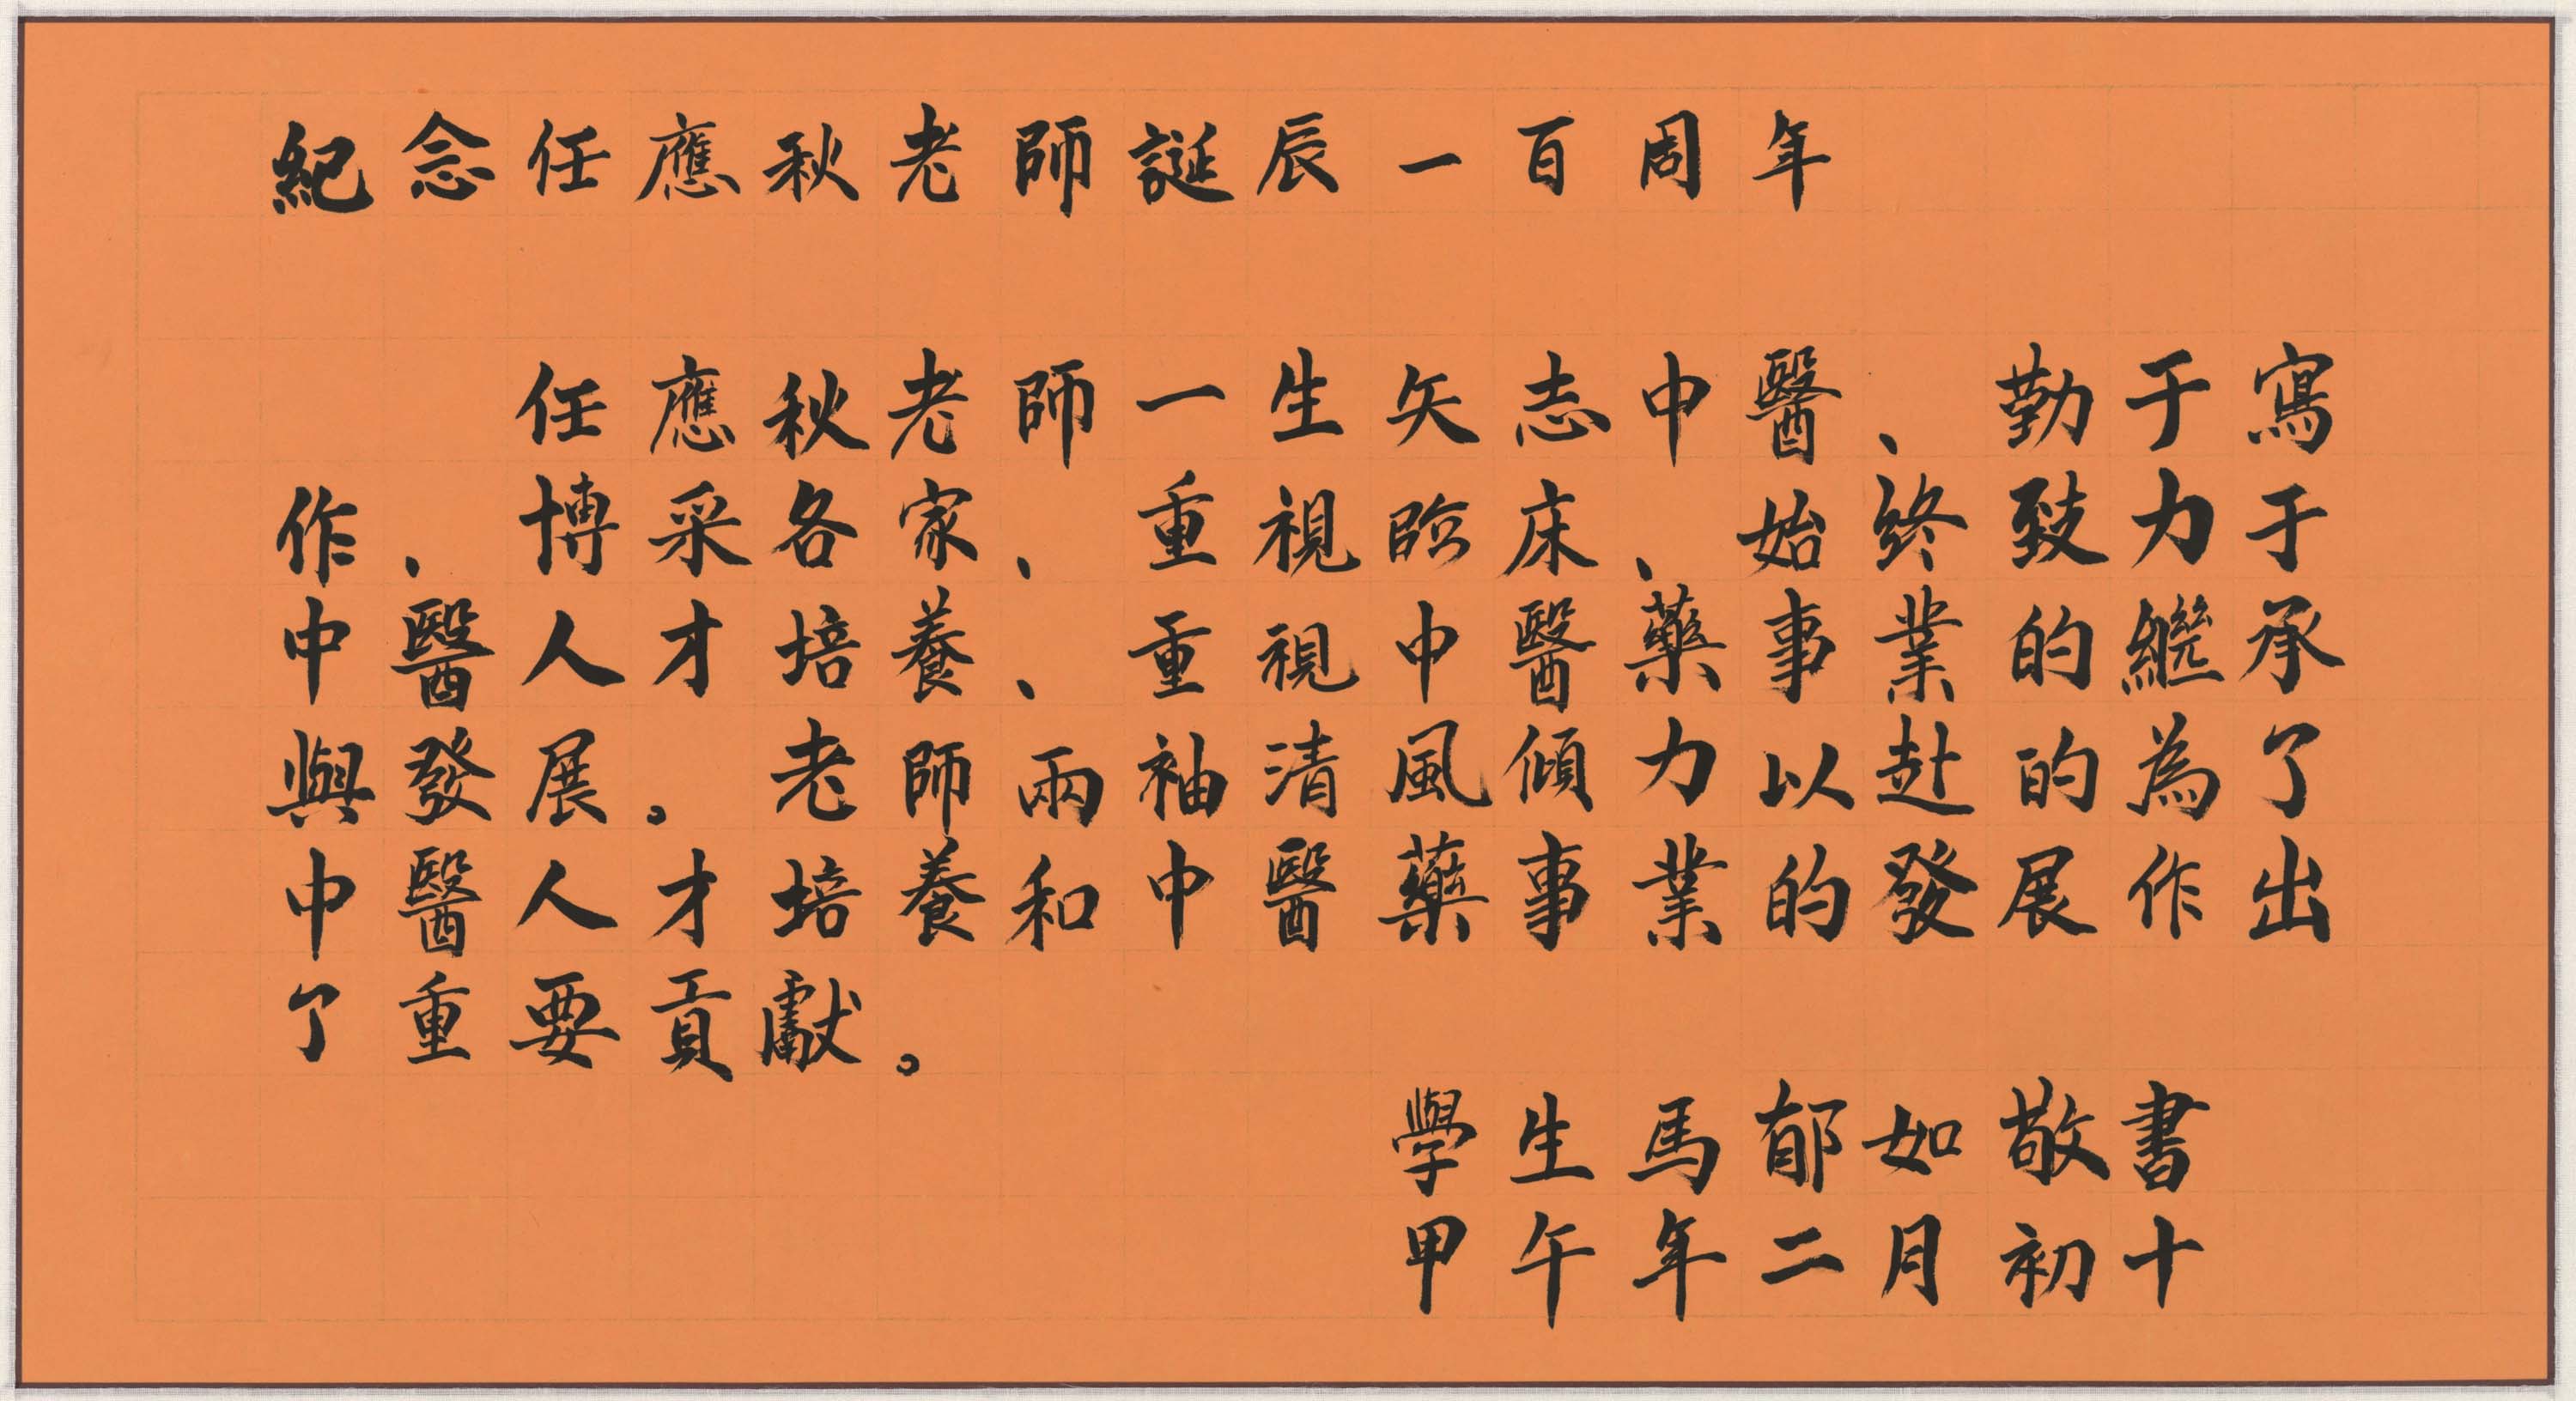 紀念任應秋老師誕辰一百周年
任應秋老師一生矢志中醫、勤于寫
作、博采各家、重視臨床、始終致力于
中醫人才培養、重視中醫藥事業的繼承
與發展。老師兩袖清風傾力以赴的為了
中醫人才培養和中醫藥事業的發展作出
了重要貢獻。
學生馬郁如敬書
甲午年二月初十